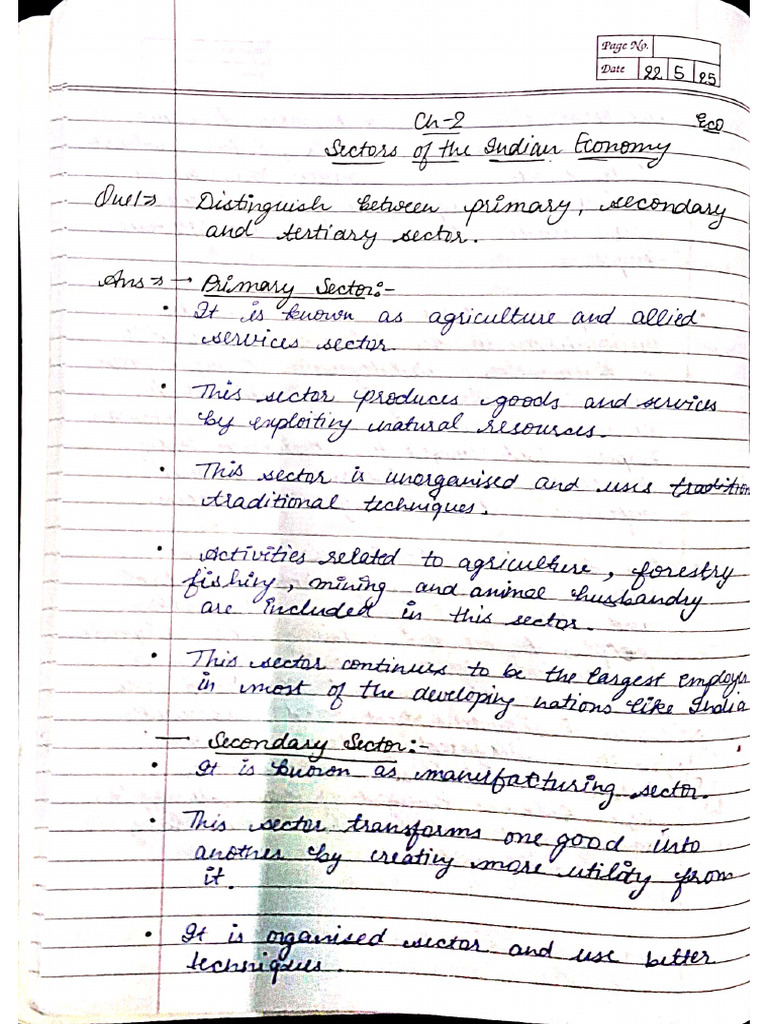 Page No.
Date 22 5 25
Ch-2 Eco
Sectors of the Indian Economy
Que1⇒ Distinguish between primary, secondary
and tertiary sector.
Ans⇒ → Primary Sector:-
• It is known as agriculture and allied
services sector.
• This sector produces goods and services
by exploiting natural resources.
• This sector is unorganised and uses tradition
traditional techniques.
• Activities related to agriculture, forestry
fishing, mining and animal husbandry
are included in this sector.
• This sector continues to be the largest employ
in most of the developing nations like India
— Secondary Sector:-
• It is known as manufacturing sector.
• This sector transforms one good into
another by creating more utility from
it.
• It is organised sector and use better
techniques.